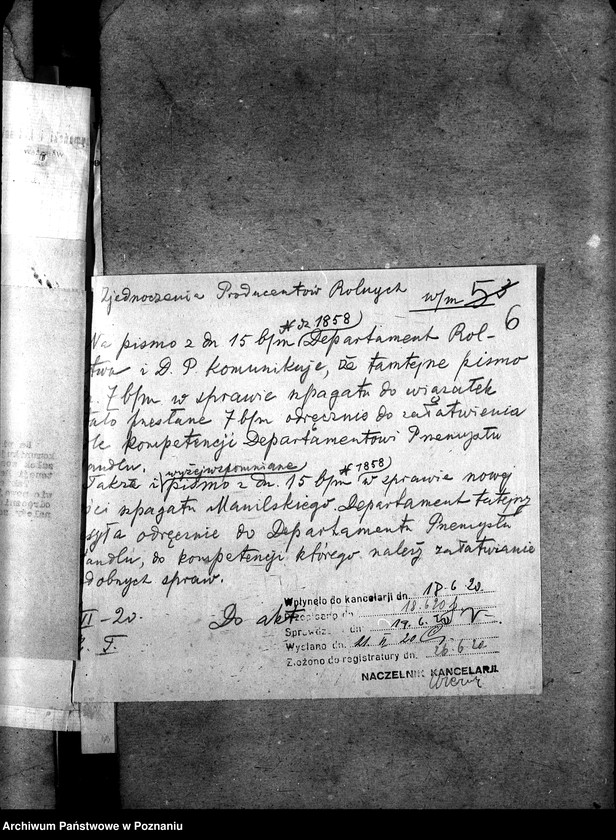 Zjednoczenia Producentów Rolnych w/m 53
6
Na pismo z dn 15 b/m (№ dz 1858) Departament Rol-
twa i D. P. komunikuje, że tamtejne pismo
7 b/m w sprawie szpagatu do wiązałek
ało przesłane 7 b/m odręcznie do załatwienia
le kompetencji Departamentowi Przemysłu
andlu.
Także i (wyżejwspomniane) pismo z dn. 15 b/m (№ 1858) w sprawie nowej
ści szpagatu Manilskiego Departament tutejszy
syła odręcznie do Departamentu Przemysłu
andlu, do kompetencji którego należy załatwianie
dobnych spraw.
VI-20.
Do akt
Wpłynęło do kancelarji dn. 18.6 20
Przepisano dn. 18.6 20
Sprawdzono dn. 19.6.20
Wysłano dn. 21 VI 20
Złożono do registratury dn. 26.6 20
NACZELNIK KANCELARJI
Archiwum Państwowe w Poznaniu